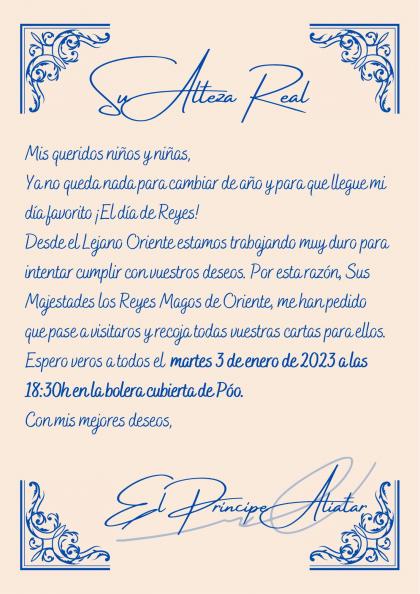 Su Alteza Real
Mis queridos niños y niñas,
Ya no queda nada para cambiar de año y para que llegue mi
día favorito ¡El día de Reyes!
Desde el Lejano Oriente estamos trabajando muy duro para
intentar cumplir con vuestros deseos. Por esta razón, Sus
Majestades los Reyes Magos de Oriente, me han pedido
que pase a visitaros y recoja todas vuestras cartas para ellos.
Espero veros a todos el martes 3 de enero de 2023 a las
18:30h en la bolera cubierta de Póo.
Con mis mejores deseos,
El Príncipe Aliatar